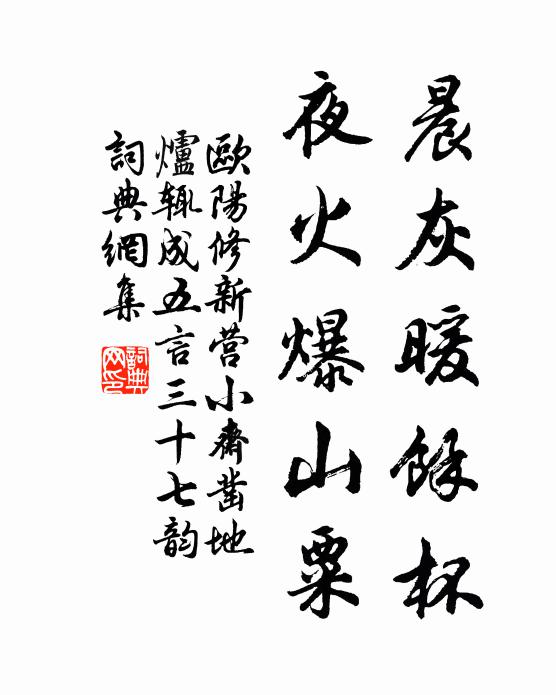 晨灰暖餘杯
夜火爆山粟
歐陽修新营小齋凿地
爐辄成五言三十七韵
詞典網集
詞典
网印